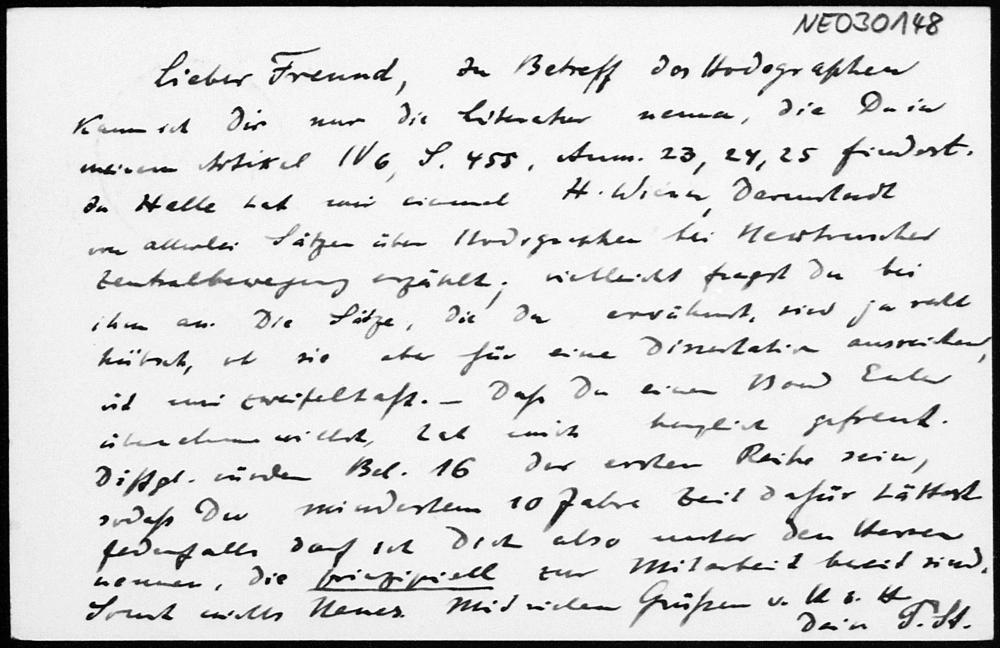 NEO30148
Lieber Freund, in Betreff des Hodographen
kann ich Dir nur die Literatur nennen, die Du in
meinem Artikel IV 6, S. 455, Anm. 23, 24, 25 findest.
In Halle hat mir einmal H. Wiener, Darmstadt
von allerlei Sätzen über Hodographen bei Newtonscher
Zentralbewegung erzählt; vielleicht fragst Du bei
ihm an. Die Sätze, die Du erwähnst, sind ja recht
hübsch, ob sie aber für eine Dissertation ausreichen,
ist mir zweifelhaft. – Daß Du einen Band Euler
übernehmen willst, hat mich herzlich gefreut.
Diffgl. würden Bd. 16 der ersten Reihe sein,
sodaß Du mindestens 10 Jahre Zeit dafür hättest
jedenfalls darf ich Dich also unter den Herren
nennen, die prinzipiell zur Mitarbeit bereit sind.
Sonst nichts Neues. Mit vielen Grüßen v. H. z. H.
Dein P. St.